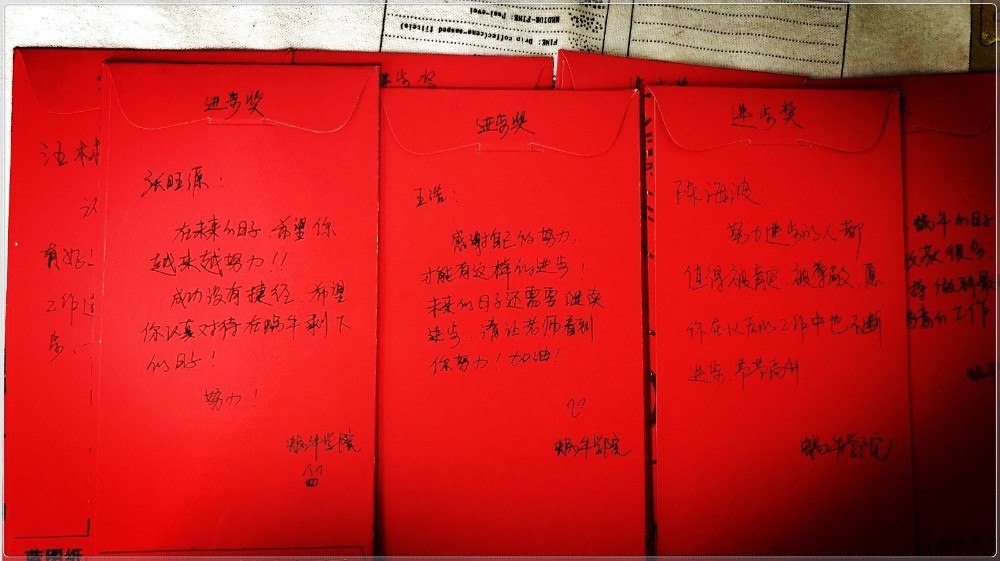 FINE: Drip coffee(cone-shaped filter)
MEDIUM-FINE:
进步奖
张旺源:
在未来的日子,希望你
越来越努力!!
成功没有捷径,希望
你认真对待在蜗牛剩下
的日子!
努力!
蜗牛学院
进步奖
王浩:
感谢自己的努力,
才能有这样的进步!
未来的日子还需要继续
进步,请让老师看到
你努力!加油!
蜗牛学院
进步奖
陈海波:
努力进步的人都
值得被肯定,被尊敬,愿
你在以后的工作中也不断
进步,节节高升.
蜗牛学院
进步奖
进步奖
汪
有好
工作
蜗牛的日子
收获很多
的工作
蓝图纸